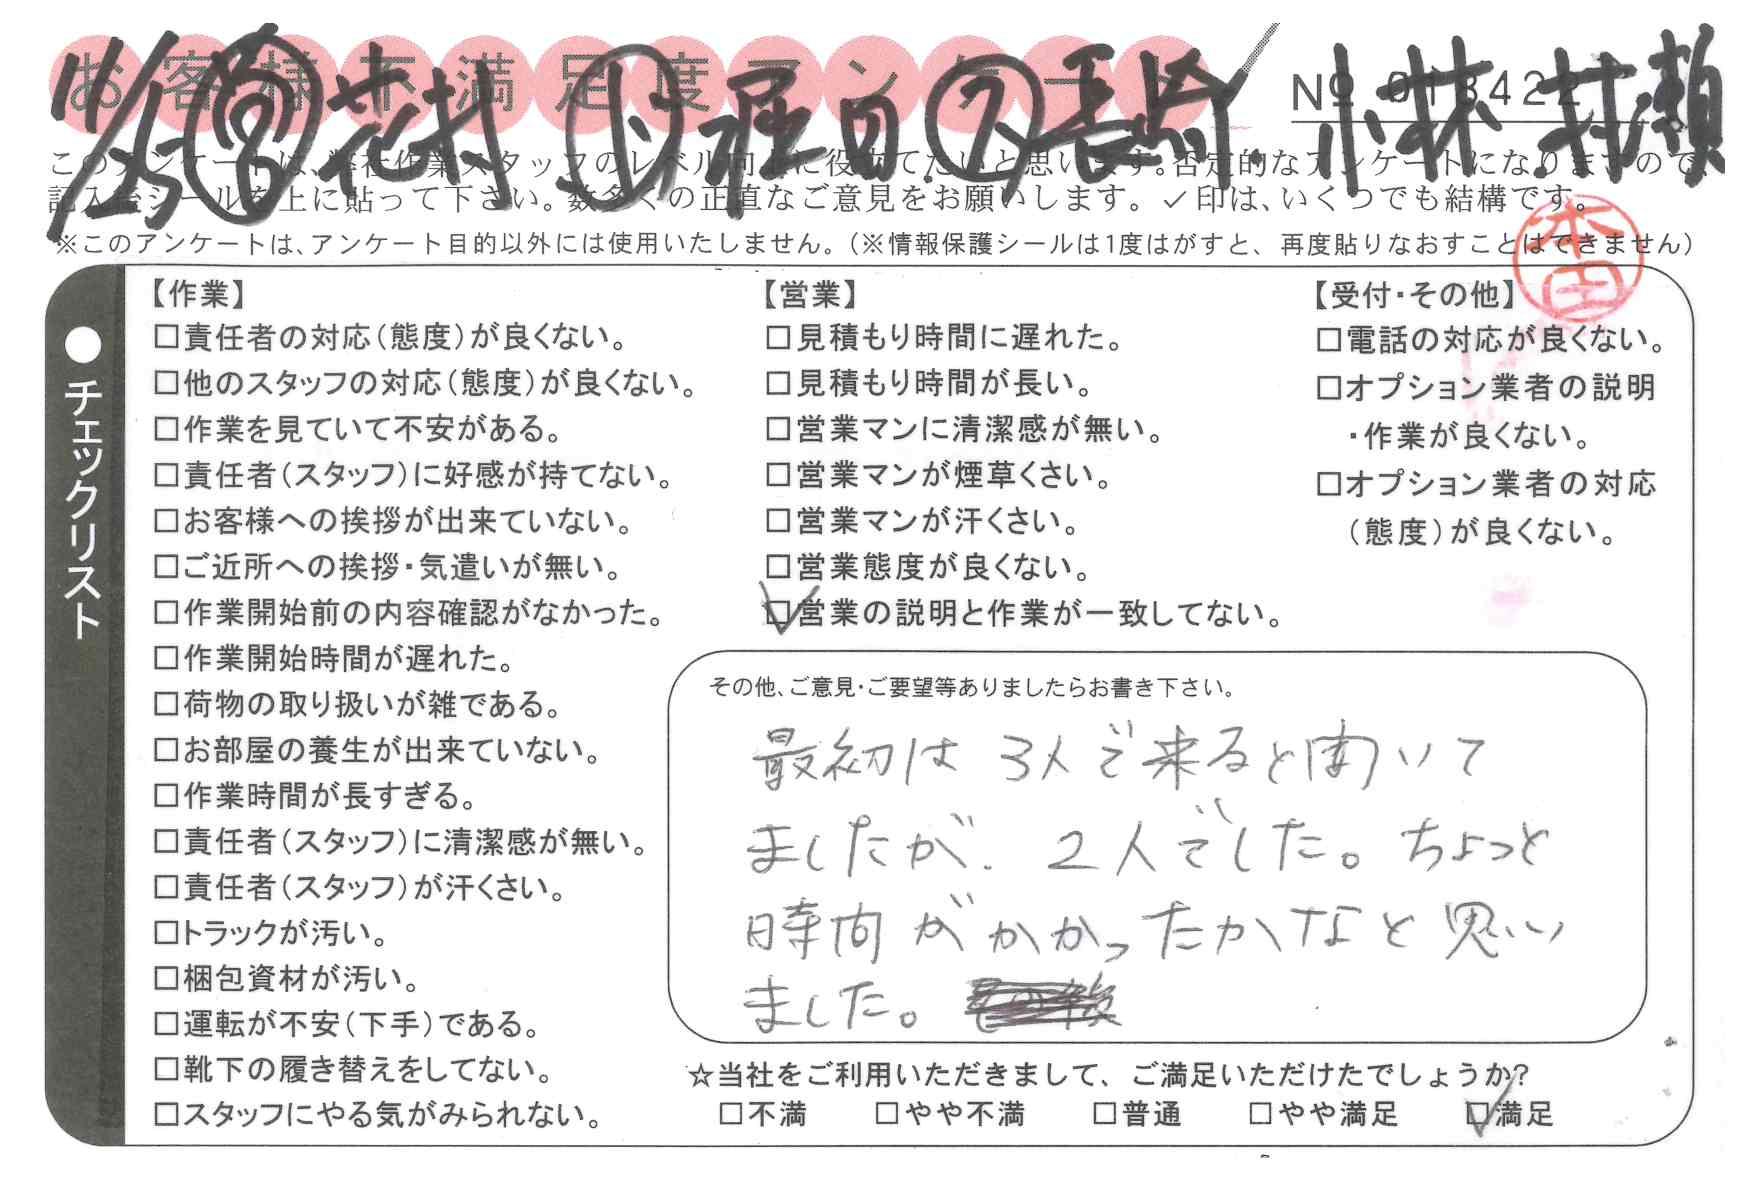 お客様不満足度アンケート
11/25 営 花村 ① 堀口 ② 長崎 小林 村瀬
№ 013422
このアンケートは、弊社作業スタッフのレベル向上に役立てたいと思います。否定的なアンケートになりますので、
記入後シールを上に貼って下さい。数多くの正直なご意見をお願いします。✓印は、いくつでも結構です。
※このアンケートは、アンケート目的以外には使用いたしません。（※情報保護シールは1度はがすと、再度貼りなおすことはできません）
本田
●チェックリスト
【作業】
□責任者の対応（態度）が良くない。
□他のスタッフの対応（態度）が良くない。
□作業を見ていて不安がある。
□責任者（スタッフ）に好感が持てない。
□お客様への挨拶が出来ていない。
□ご近所への挨拶・気遣いが無い。
□作業開始前の内容確認がなかった。
□作業開始時間が遅れた。
□荷物の取り扱いが雑である。
□お部屋の養生が出来ていない。
□作業時間が長すぎる。
□責任者（スタッフ）に清潔感が無い。
□責任者（スタッフ）が汗くさい。
□トラックが汚い。
□梱包資材が汚い。
□運転が不安（下手）である。
□靴下の履き替えをしてない。
□スタッフにやる気がみられない。
【営業】
□見積もり時間に遅れた。
□見積もり時間が長い。
□営業マンに清潔感が無い。
□営業マンが煙草くさい。
□営業マンが汗くさい。
□営業態度が良くない。
☑営業の説明と作業が一致してない。
【受付・その他】
□電話の対応が良くない。
□オプション業者の説明
・作業が良くない。
□オプション業者の対応
（態度）が良くない。
その他、ご意見・ご要望等ありましたらお書き下さい。
最初は 3人で来ると聞いて
ましたが、2人でした。ちょっと
時間がかかったかなと思い
ました。
☆当社をご利用いただきまして、ご満足いただけたでしょうか？
□不満 □やや不満 □普通 □やや満足 ☑満足